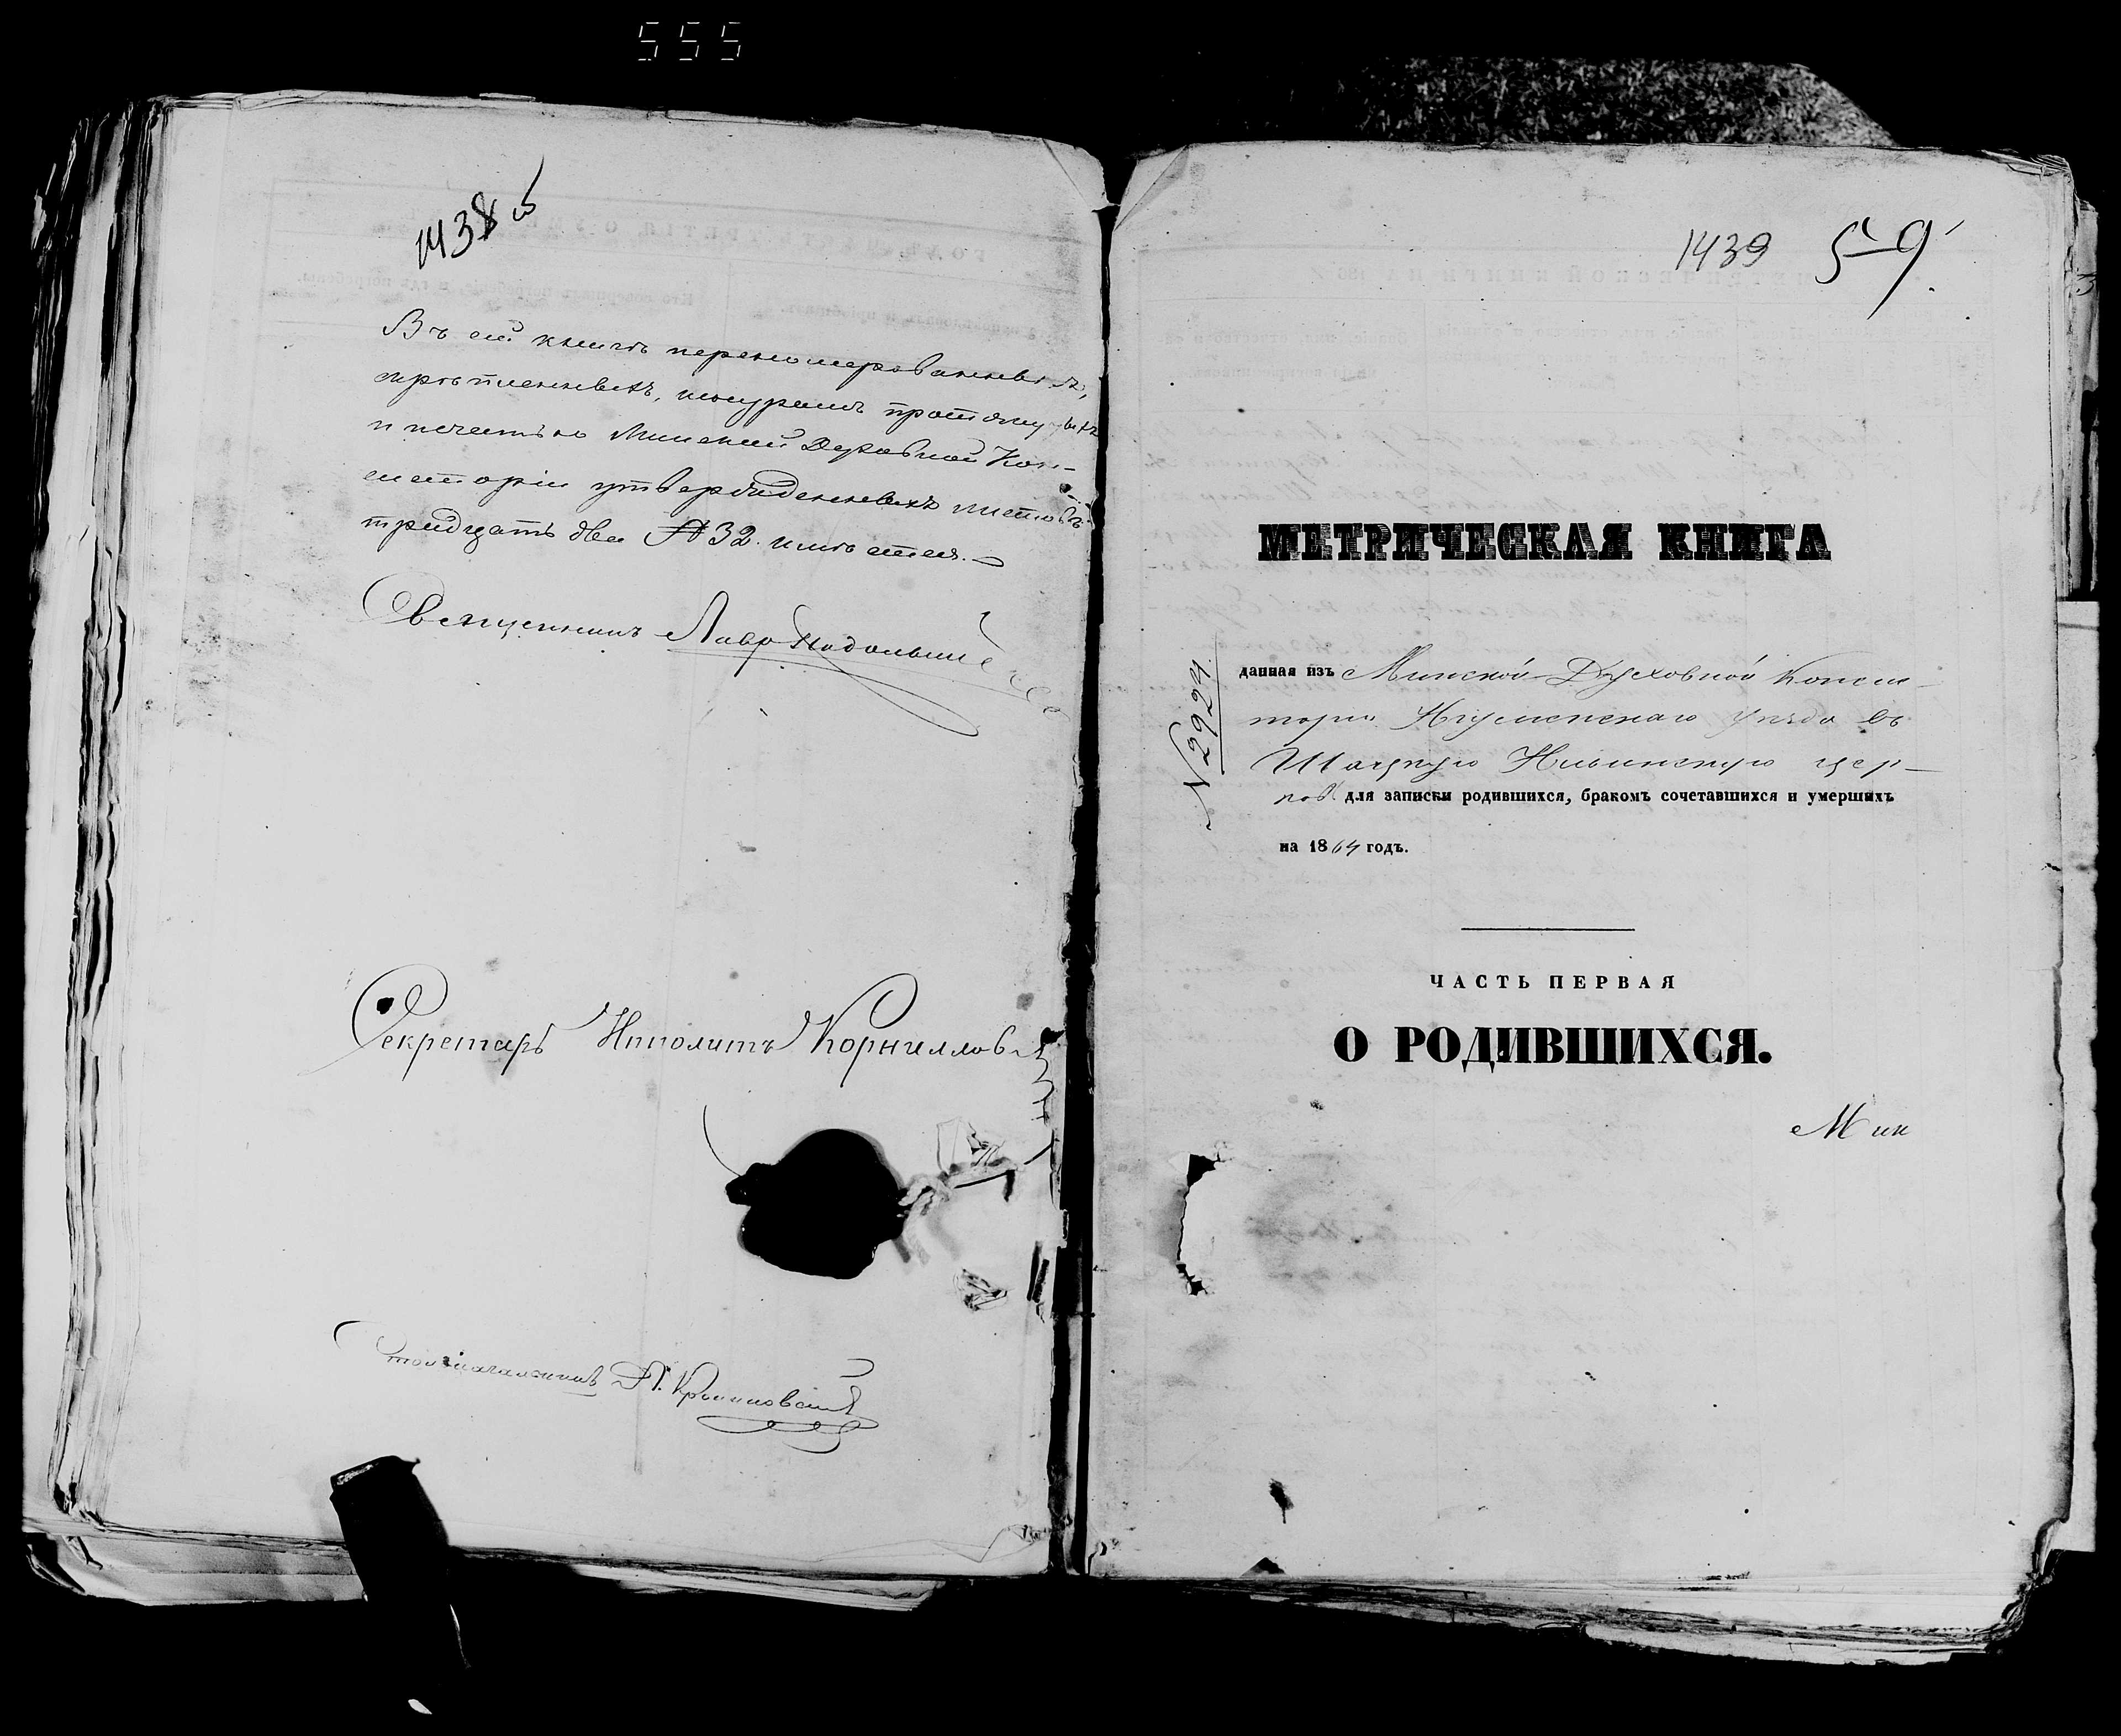 555
1438 об
Въ сей книгѣ перенумерованныхъ,
скрѣпленныхъ, шнуромъ протянутыхъ
и печатью Минской Духовной Кон-
систоріи утвержденныхъ листовъ
тридцать два № 32. имѣется.
Священникъ Лавр
Секретарь Ипполитъ Корниллов
Столоначальникъ
1439 59
МЕТРИЧЕСКАЯ КНИГА
№ 2924
данная изъ Минской Духовной Консис-
торіи Игуменскаго уѣзда въ
Шацкую Ильинскую цер-
ковь для записки родившихся, бракомъ сочетавшихся и умершихъ
на 1864 годъ.
ЧАСТЬ ПЕРВАЯ
О РОДИВШИХСЯ.
Мин